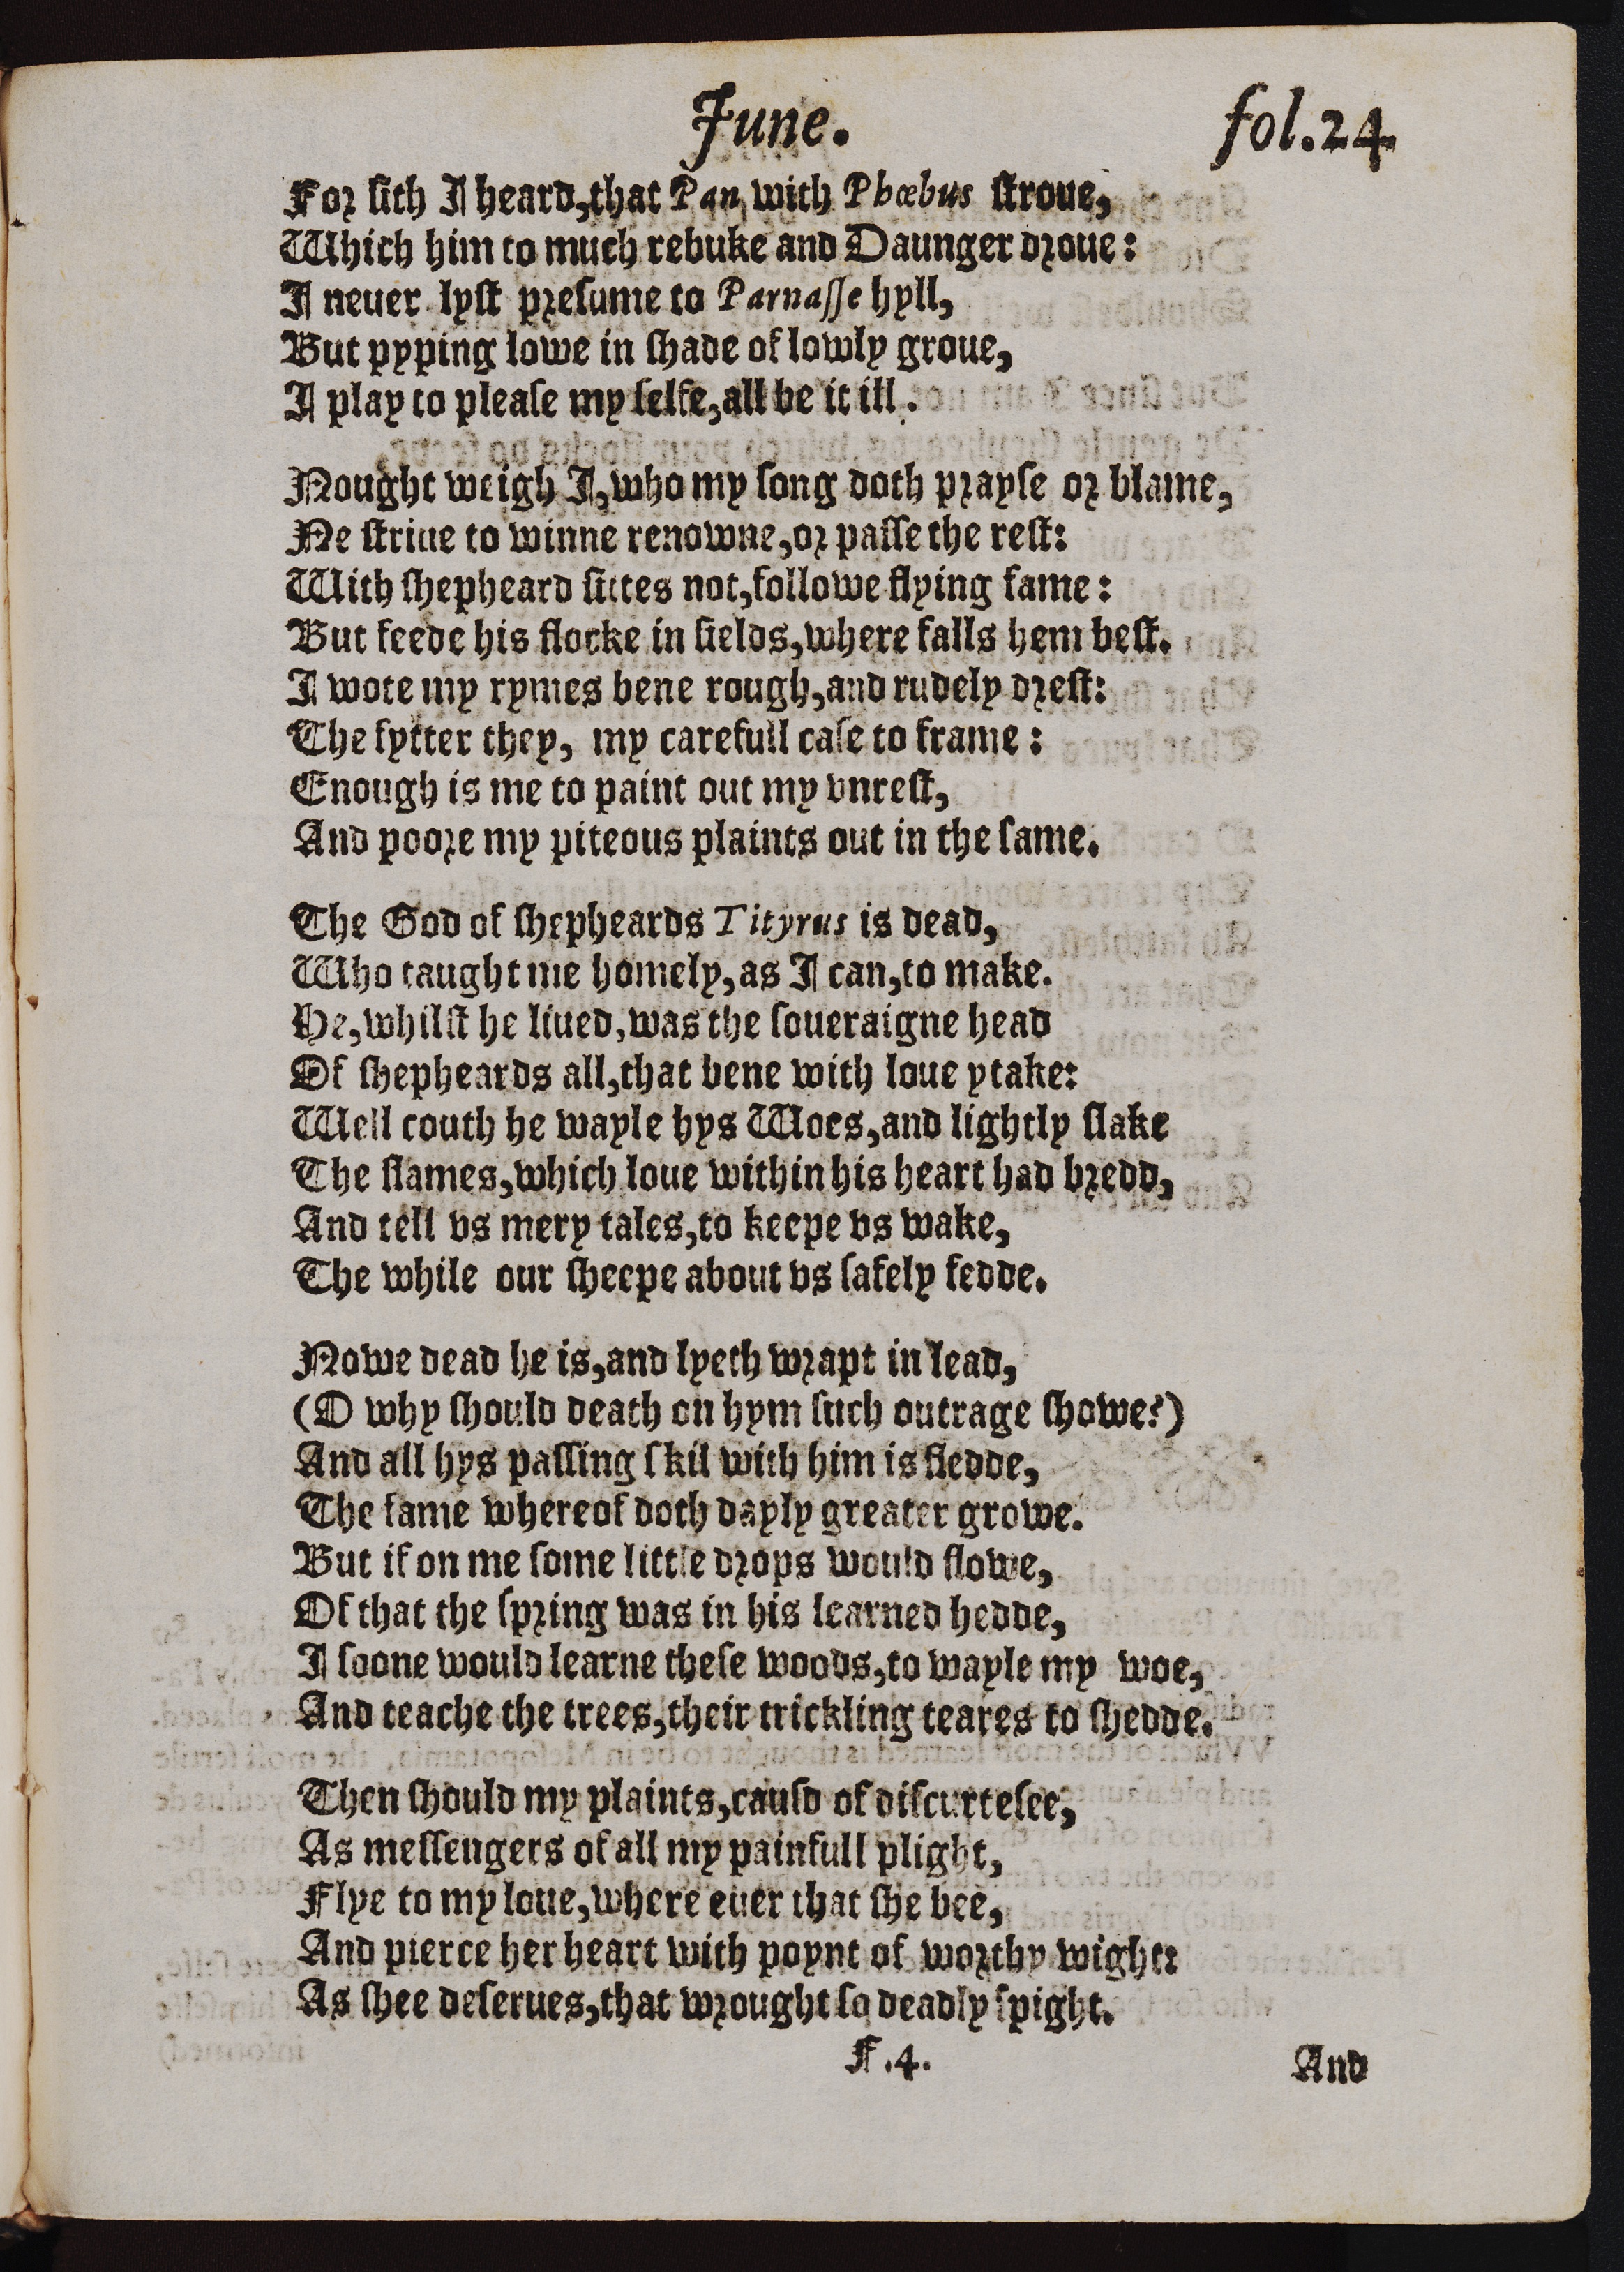 June. fol.24.
For ſith I heard,that Pan with Phœbus ſtroue,
Which him to much rebuke and Daunger droue:
I neuer lyſt preſume to Parnaſſe hyll,
But pyping lowe in ſhade of lowly groue,
I play to pleaſe my ſelfe,all be it ill.
Nought weigh I,who my ſong doth prayſe or blame,
Ne ſtriue to winne renowne,or paſſe the reſt:
With ſhepheard ſittes not,followe flying fame:
But feede his flocke in fields,where falls hem beſt.
I wote my rymes bene rough,and rudely dreſt:
The fytter they, my carefull caſe to frame:
Enough is me to paint out my vnreſt,
And poore my piteous plaints out in the ſame.
The God of ſhepheards Tityrus is dead,
Who taught me homely,as I can,to make.
He,whilſt he liued,was the ſoueraigne head
Of ſhepheards all,that bene with loue ytake:
Well couth he wayle hys Woes,and lightly ſlake
The flames,which loue within his heart had bredd,
And tell vs mery tales,to keepe vs wake,
The while our ſheepe about vs ſafely fedde.
Nowe dead he is,and lyeth wrapt in lead,
(O why ſhould death on hym ſuch outrage ſhowe?)
And all hys paſſing ſkil with him is fledde,
The fame whereof doth dayly greater growe.
But if on me ſome little drops would flowe,
Of that the ſpring was in his learned hedde,
I ſoone would learne theſe woods,to wayle my woe,
And teache the trees,their trickling teares to ſhedde.
Then ſhould my plaints,cauſd of diſcurteſee,
As meſſengers of all my painfull plight,
Flye to my loue,where euer that ſhe bee,
And pierce her heart with poynt of worthy wight:
As ſhee deſerues,that wrought ſo deadly ſpight.
F.4. And